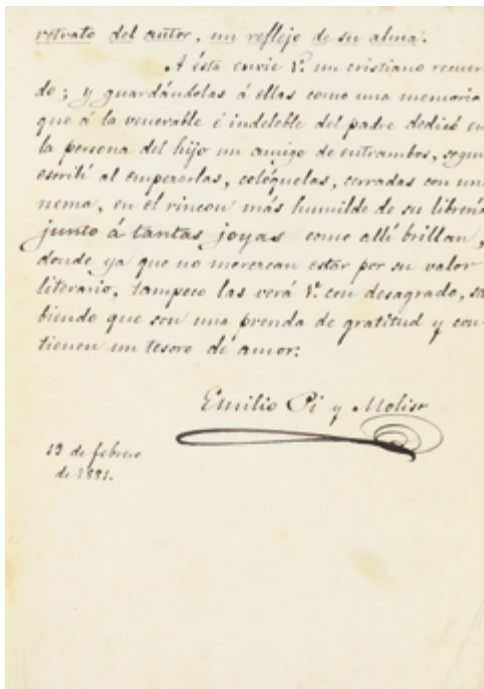 retrato del autor, un reflejo de su alma.
A ésta envie V. un cristiano recuer-
do; y guardándolas á ellas como una memoria
que á la venerable é indeleble del padre dedicó en
la persona del hijo un amigo de entrambos, segun
escribí al empezarlas, colóquelas, cerradas con una
nema, en el rincon más humilde de su librería
junto á tantas joyas como allí brillan,
donde ya que no merezcan estar por su valor
literario, tampoco las verá V. con desagrado, sa-
biendo que son una prenda de gratitud y con-
tienen un tesoro de amor.
Emilio Pi y Molist
19 de febrero
de 1881.